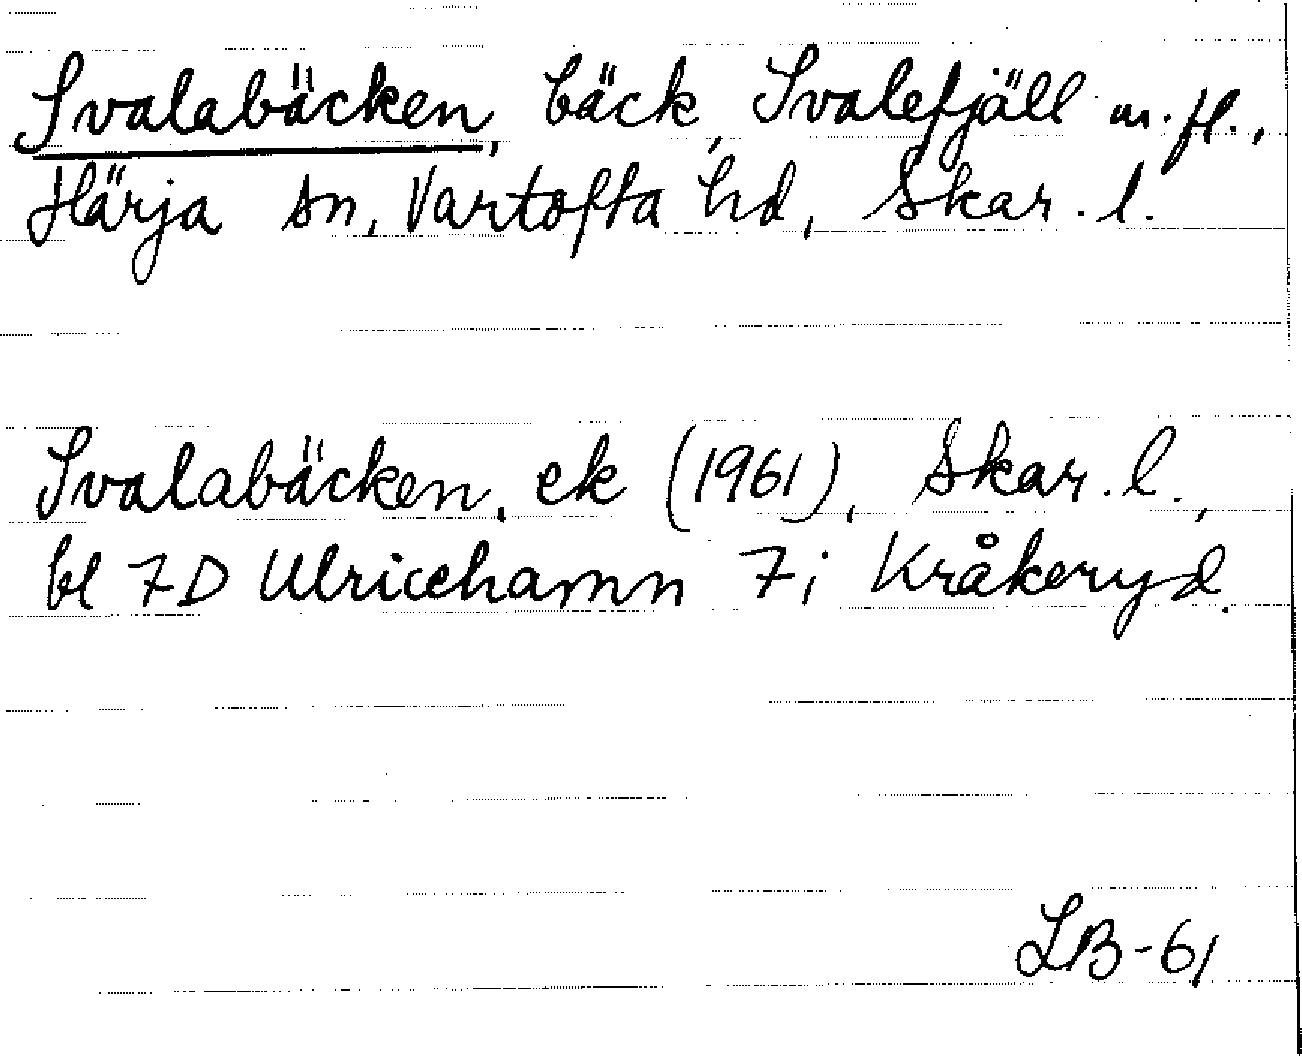 Svalabäcken, bäck, Svalefjäll m.fl.,
Härja sn, Vartofta hd, Skar. l.
Svalabäcken, ek (1961), Skar. l.,
bl 7D Ulricehamn 7i Kråkeryd.
LB-61